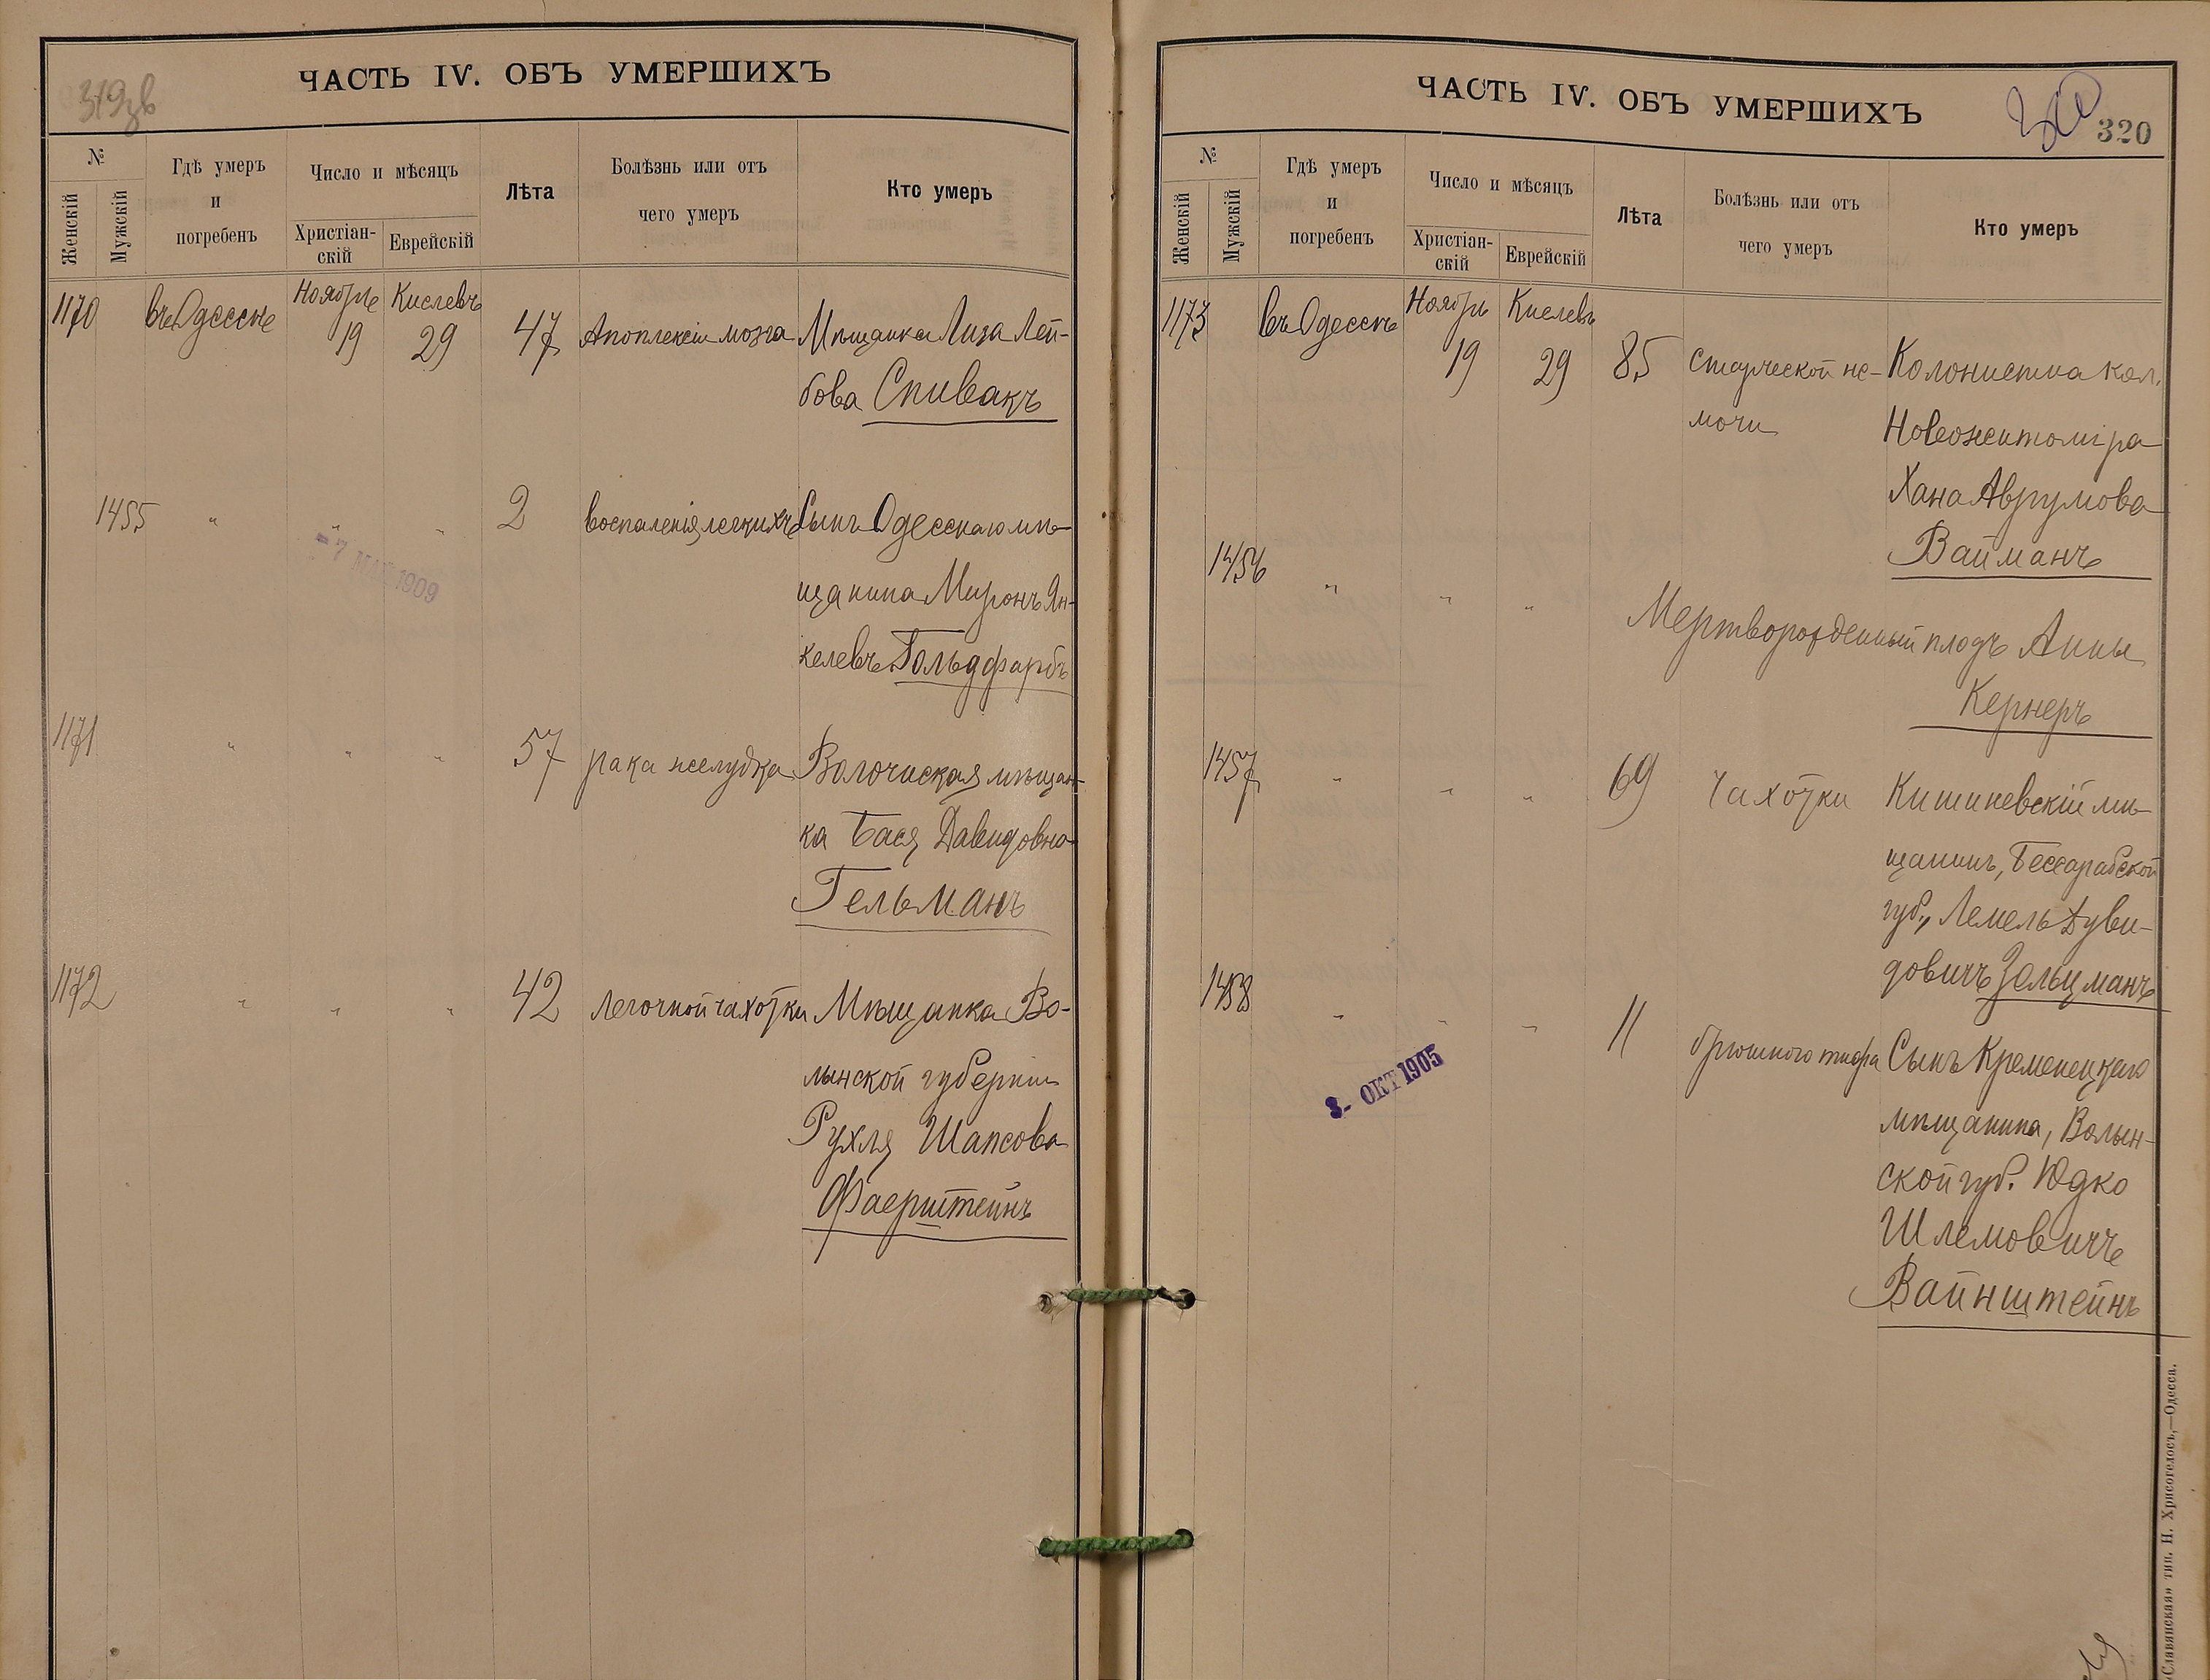 319зв
ЧАСТЬ IV. ОБЪ УМЕРШИХЪ
№
Женскій
Мужскій
Гдѣ умеръ
и
погребенъ
Число и мѣсяцъ
Христіан-
скій
Еврейскій
Лѣта
Болѣзнь или отъ
чего умеръ
Кто умеръ
1170 въ Одессѣ Ноября 19 Кислевъ 29 47 Апоплексіи мозга Мѣщанка Лиза Лей-
бова Спивакъ
1455 " " " 2 воспаленія легкихъ Сынъ Одесскаго мѣ-
щанина Миронъ Ян-
келевъ Гольдфарбъ
-7 МАЯ 1909
1171 " " " 57 рака желудка Волочиская мѣщан-
ка Бася Давидовна
Гельманъ
1172 " " " 42 Легочной чахотки Мѣщанка Во-
лынской губерніи
Рухля Шапсова
Фаерштейнъ
ЧАСТЬ IV. ОБЪ УМЕРШИХЪ
320
№
Женскій
Мужскій
Гдѣ умеръ
и
погребенъ
Число и мѣсяцъ
Христіан-
скій
Еврейскій
Лѣта
Болѣзнь или отъ
чего умеръ
Кто умеръ
1173 въ Одессѣ Ноябрь 19 Кислевъ 29 85 старческой не- Колонистка кол.
мочи Новожитоміра
Хана Аврумова
Вайманъ
1456 " " " Мертворожденный плодъ Анны
Кернеръ
1457 " " " 69 Чахотки Кишиневскій мѣ-
щанинъ, Бессарабской
губ., Лемель Дуви-
довичъ Зельцманъ
1458 " " " 11 брюшного тифа Сынъ Кременецкаго
мѣщанина, Волын-
ской губ. Юдко
Шлемовичъ
Вайнштейнъ
3- ОКТ 1905
«Славянская» тип. Н. Хрисогелосъ,—Одесса.